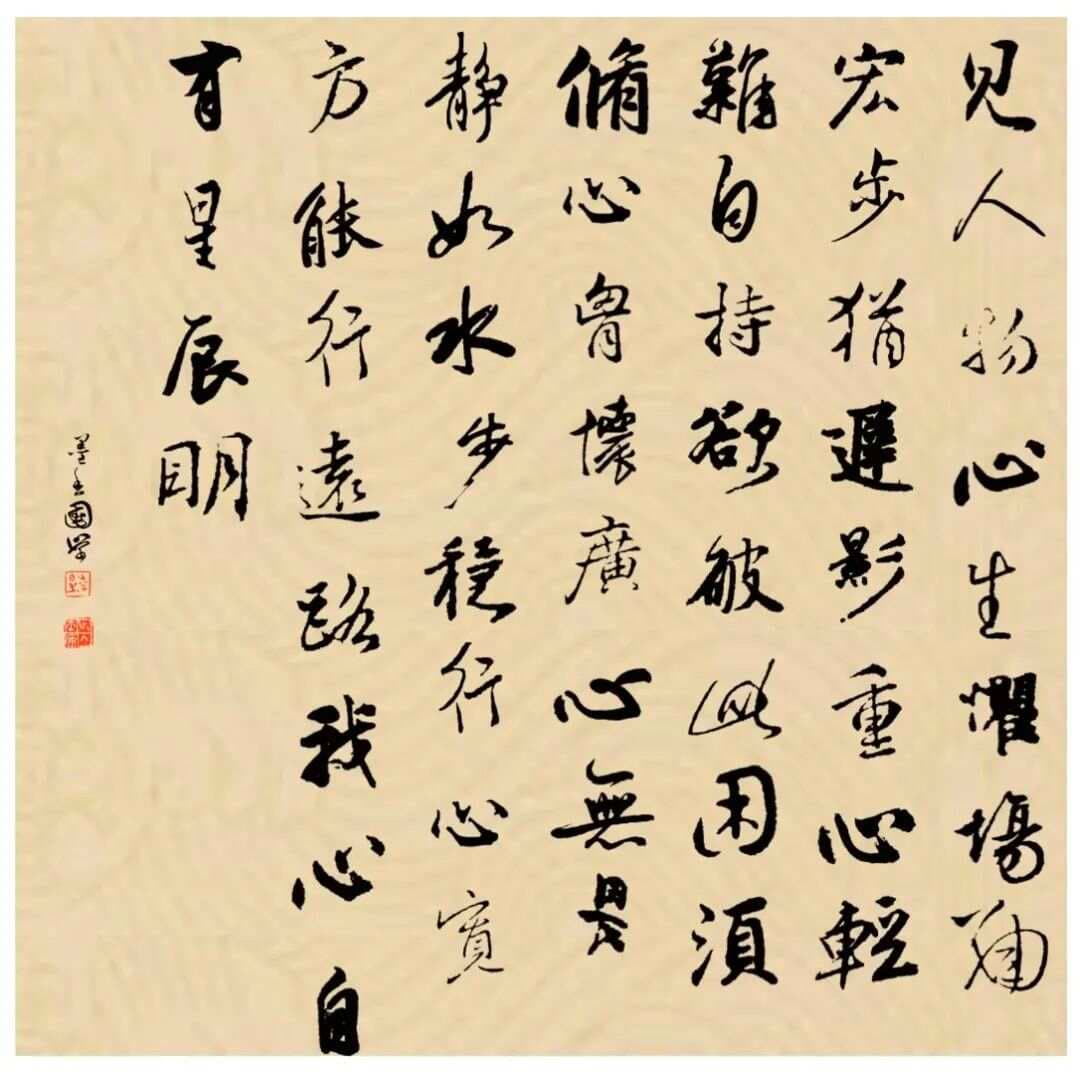 见人物心生懼場彌
宏步猶遲影重心輕
難自持欲破此困須
脩心胷懷廣心無畏
靜如水步穩行心寬
方能行遠路我心自
有星辰明
墨國學